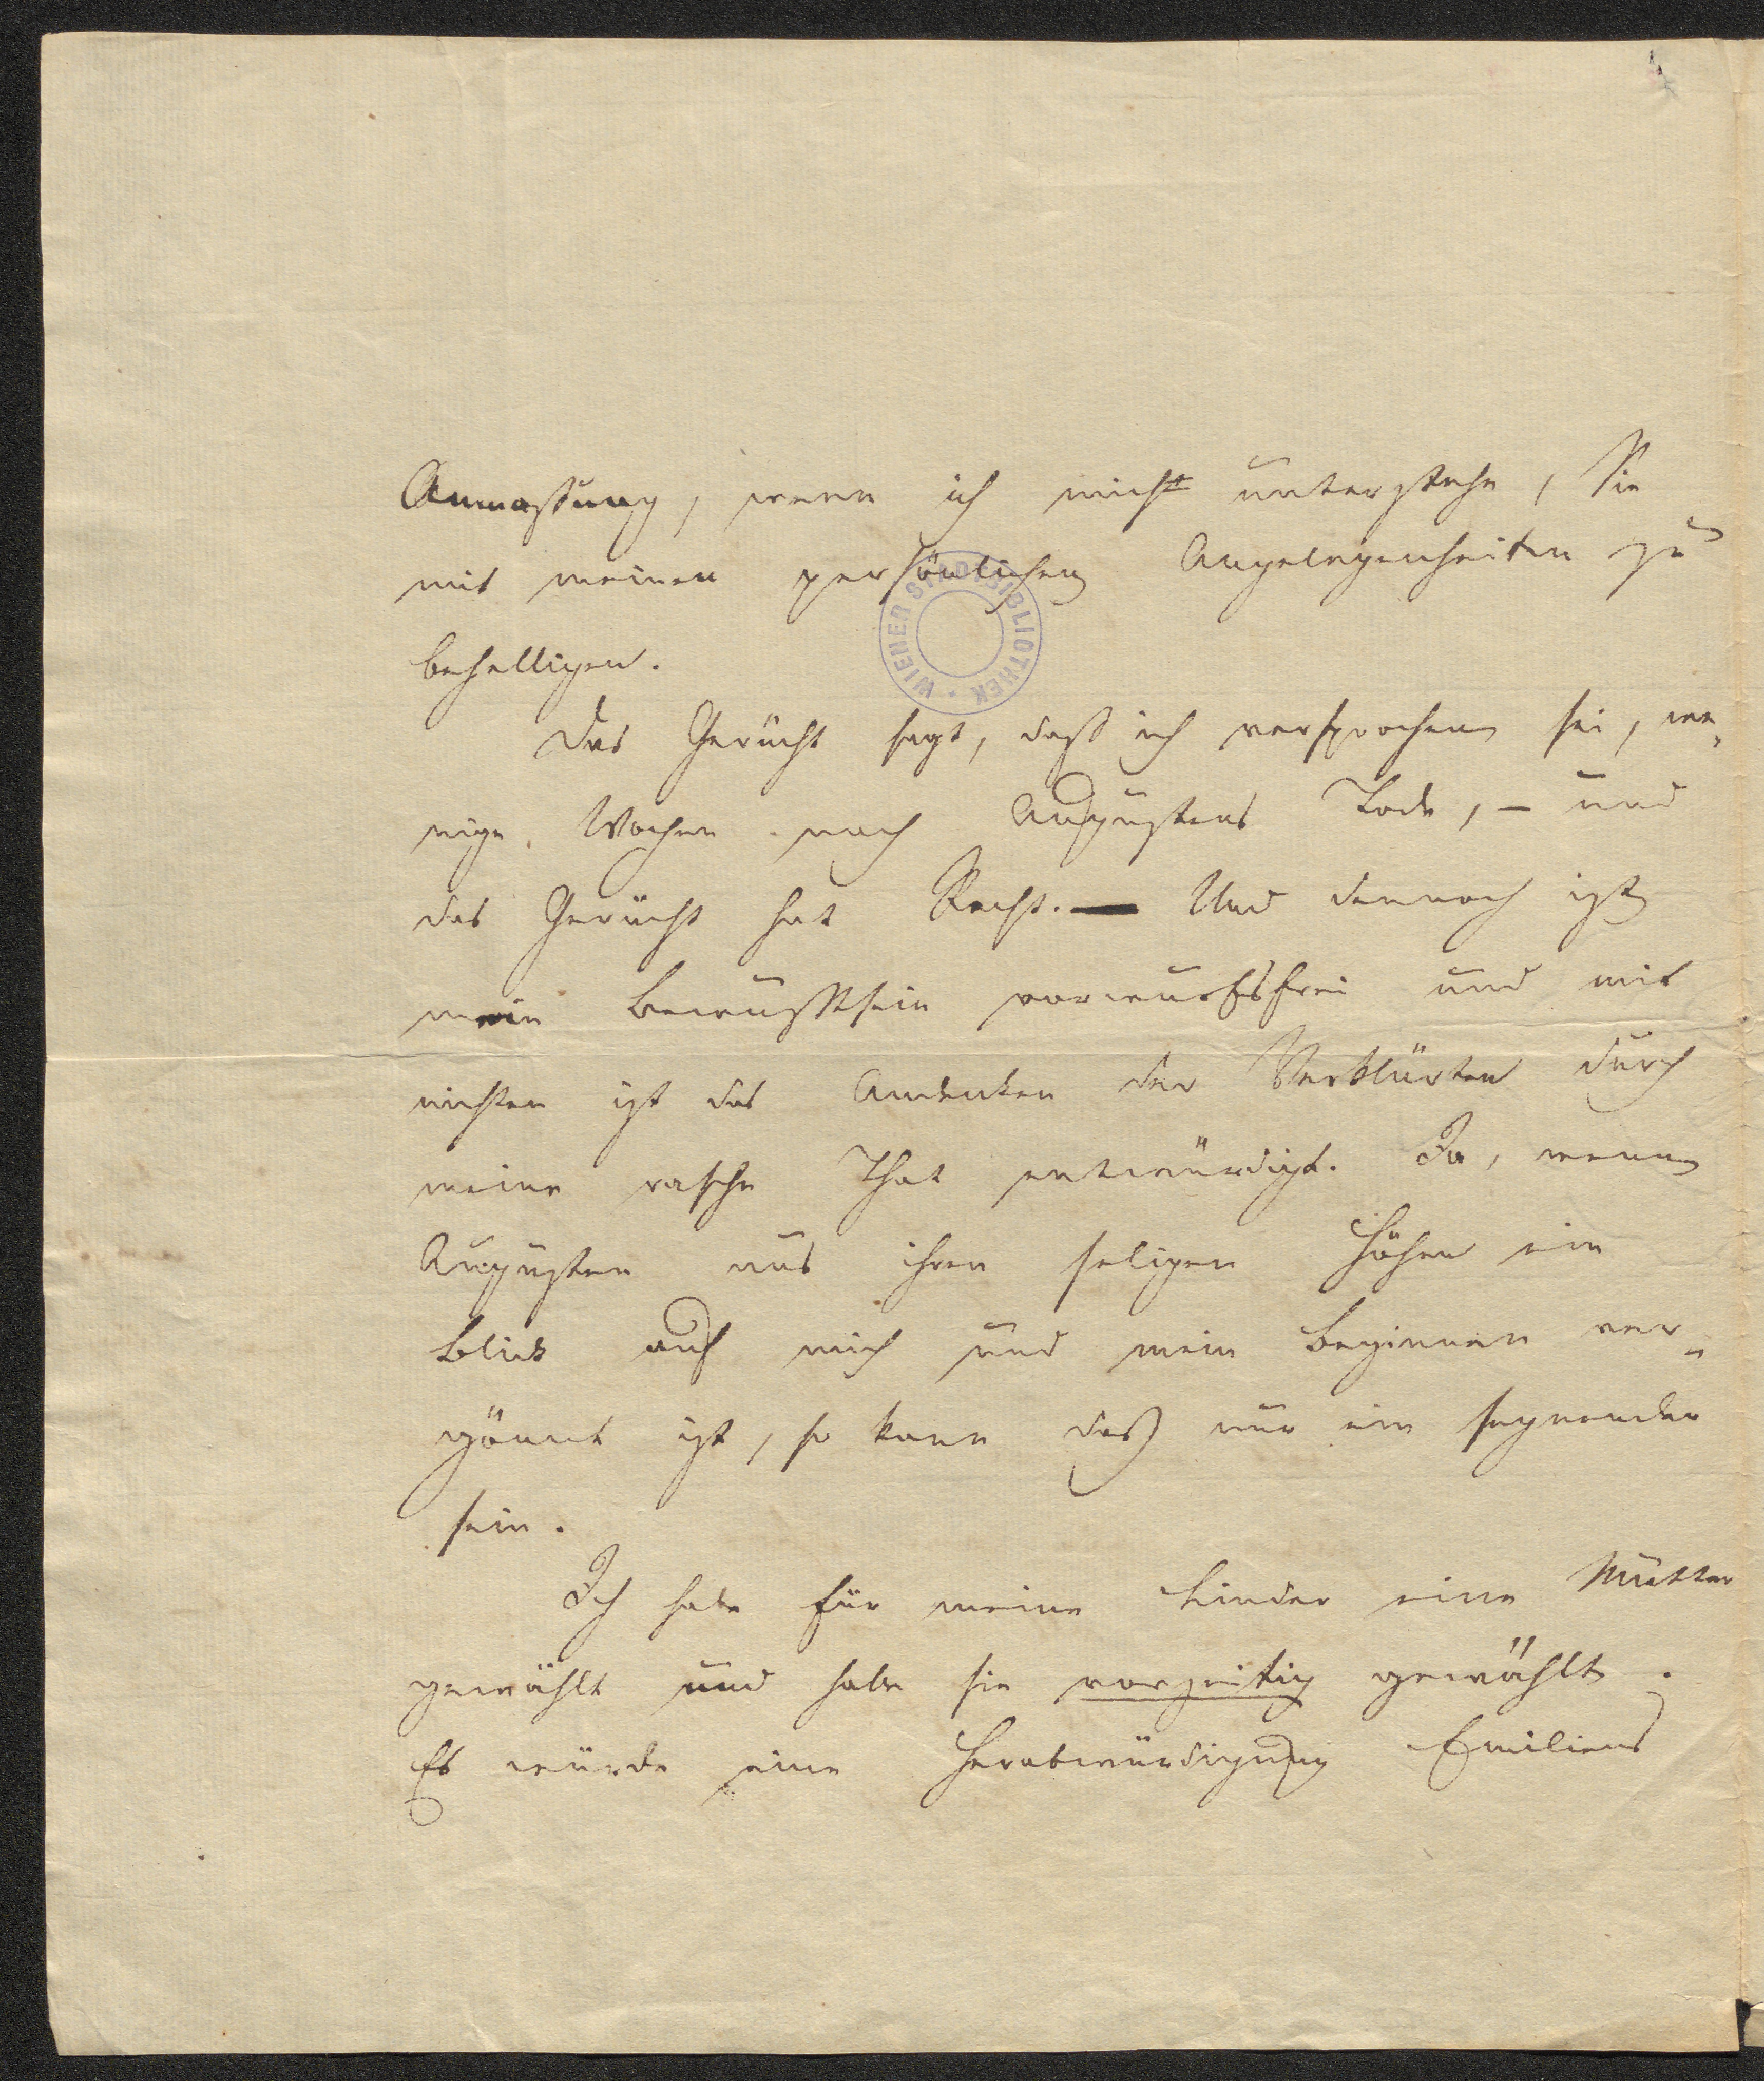 Anmassung, wenn ich mich unterstehe, Sie
mit meinen persönlichen Angelegenheiten zu
behelligen.
WIENER STADTBIBLIOTHEK
Das Gerücht sagt, dass ich versprochen sei, we-
nige Wochen nach Augustens Tode, – und
das Gerücht hat Recht. — Und dennoch ist
mein Bewusstsein vorwurfsfrei und mit
nichten ist das Andenken der Verklärten durch
meine rasche That entwürdigt. Ja, wenn
Augusten aus ihren seligen Höhen ein
Blick auf mich und mein Beginnen ver-
gönnt ist, so kann das nur ein segnender
sein.
Ich habe für meine Kinder eine Mutter
gewählt und habe sie vorzeitig gewählt.
Es würde eine Herabwürdigung Emiliens